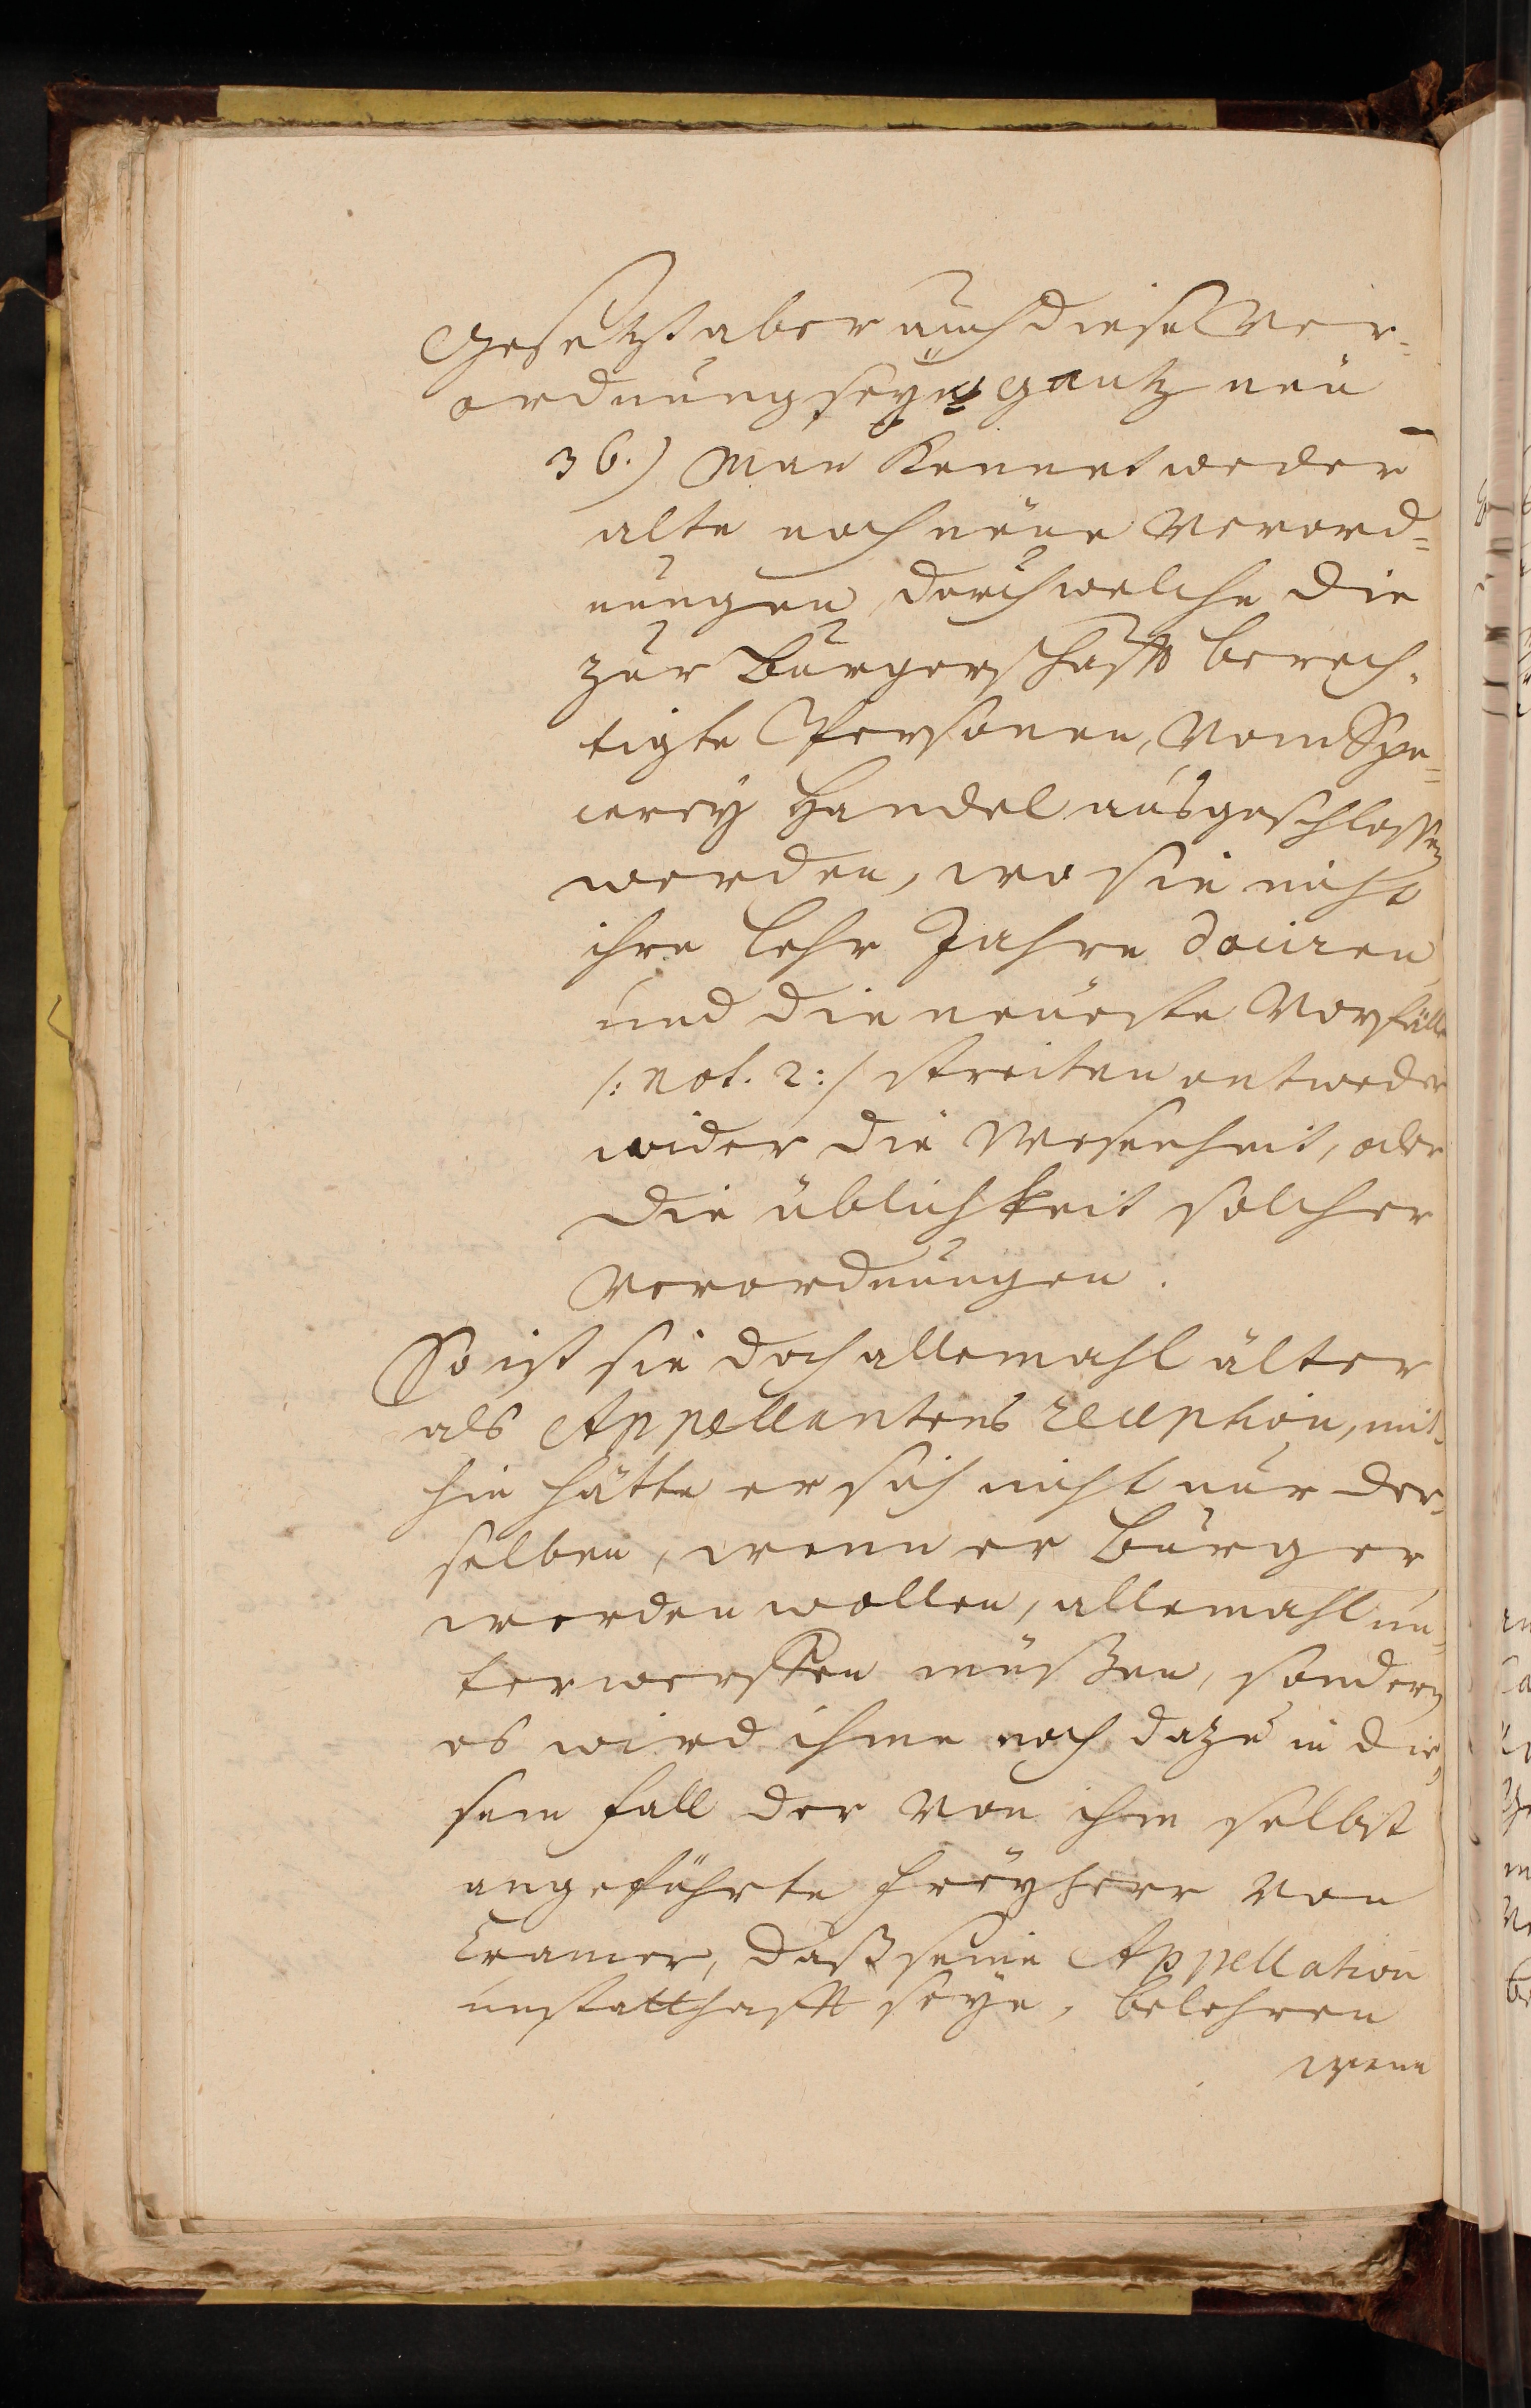 Gesetzt aber auch diese Ver=
ordnung seye gantz neu
36.) Man kennet weder
alte noch neue Verord=
nungen, durch welche die
zur Burgerschafft berech=
tigte Personen, vom Spe=
cerey Handel ausgeschlossen
werden, wo sie nicht
ihre Lehr Jahre dociren
und die neueste Vorfälle
/: not. 2 :/ streiten entweder
wider die Wesenheit, oder
die üblichkeit solcher
Verordnungen.
So ist sie doch allemahl älter
als Appellantens reception, mit=
hin hätte er sich nicht nur der=
selben, wenn er Burger
werden wollen, allemahl un=
terwerffen müßen, sondern
es wird ihme noch dazu in die=
sem Fall der von ihm selbst
angeführte Freyherr von
Cramer, daß seine Appellation
unstatthafft seye, belehren
wenn